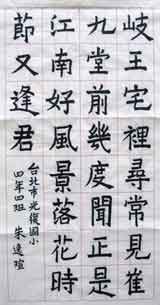 岐王宅裡尋常見崔
九堂前幾度聞正是
江南好風景落花時
節又逢君
台北市光復國小
四年四班 朱